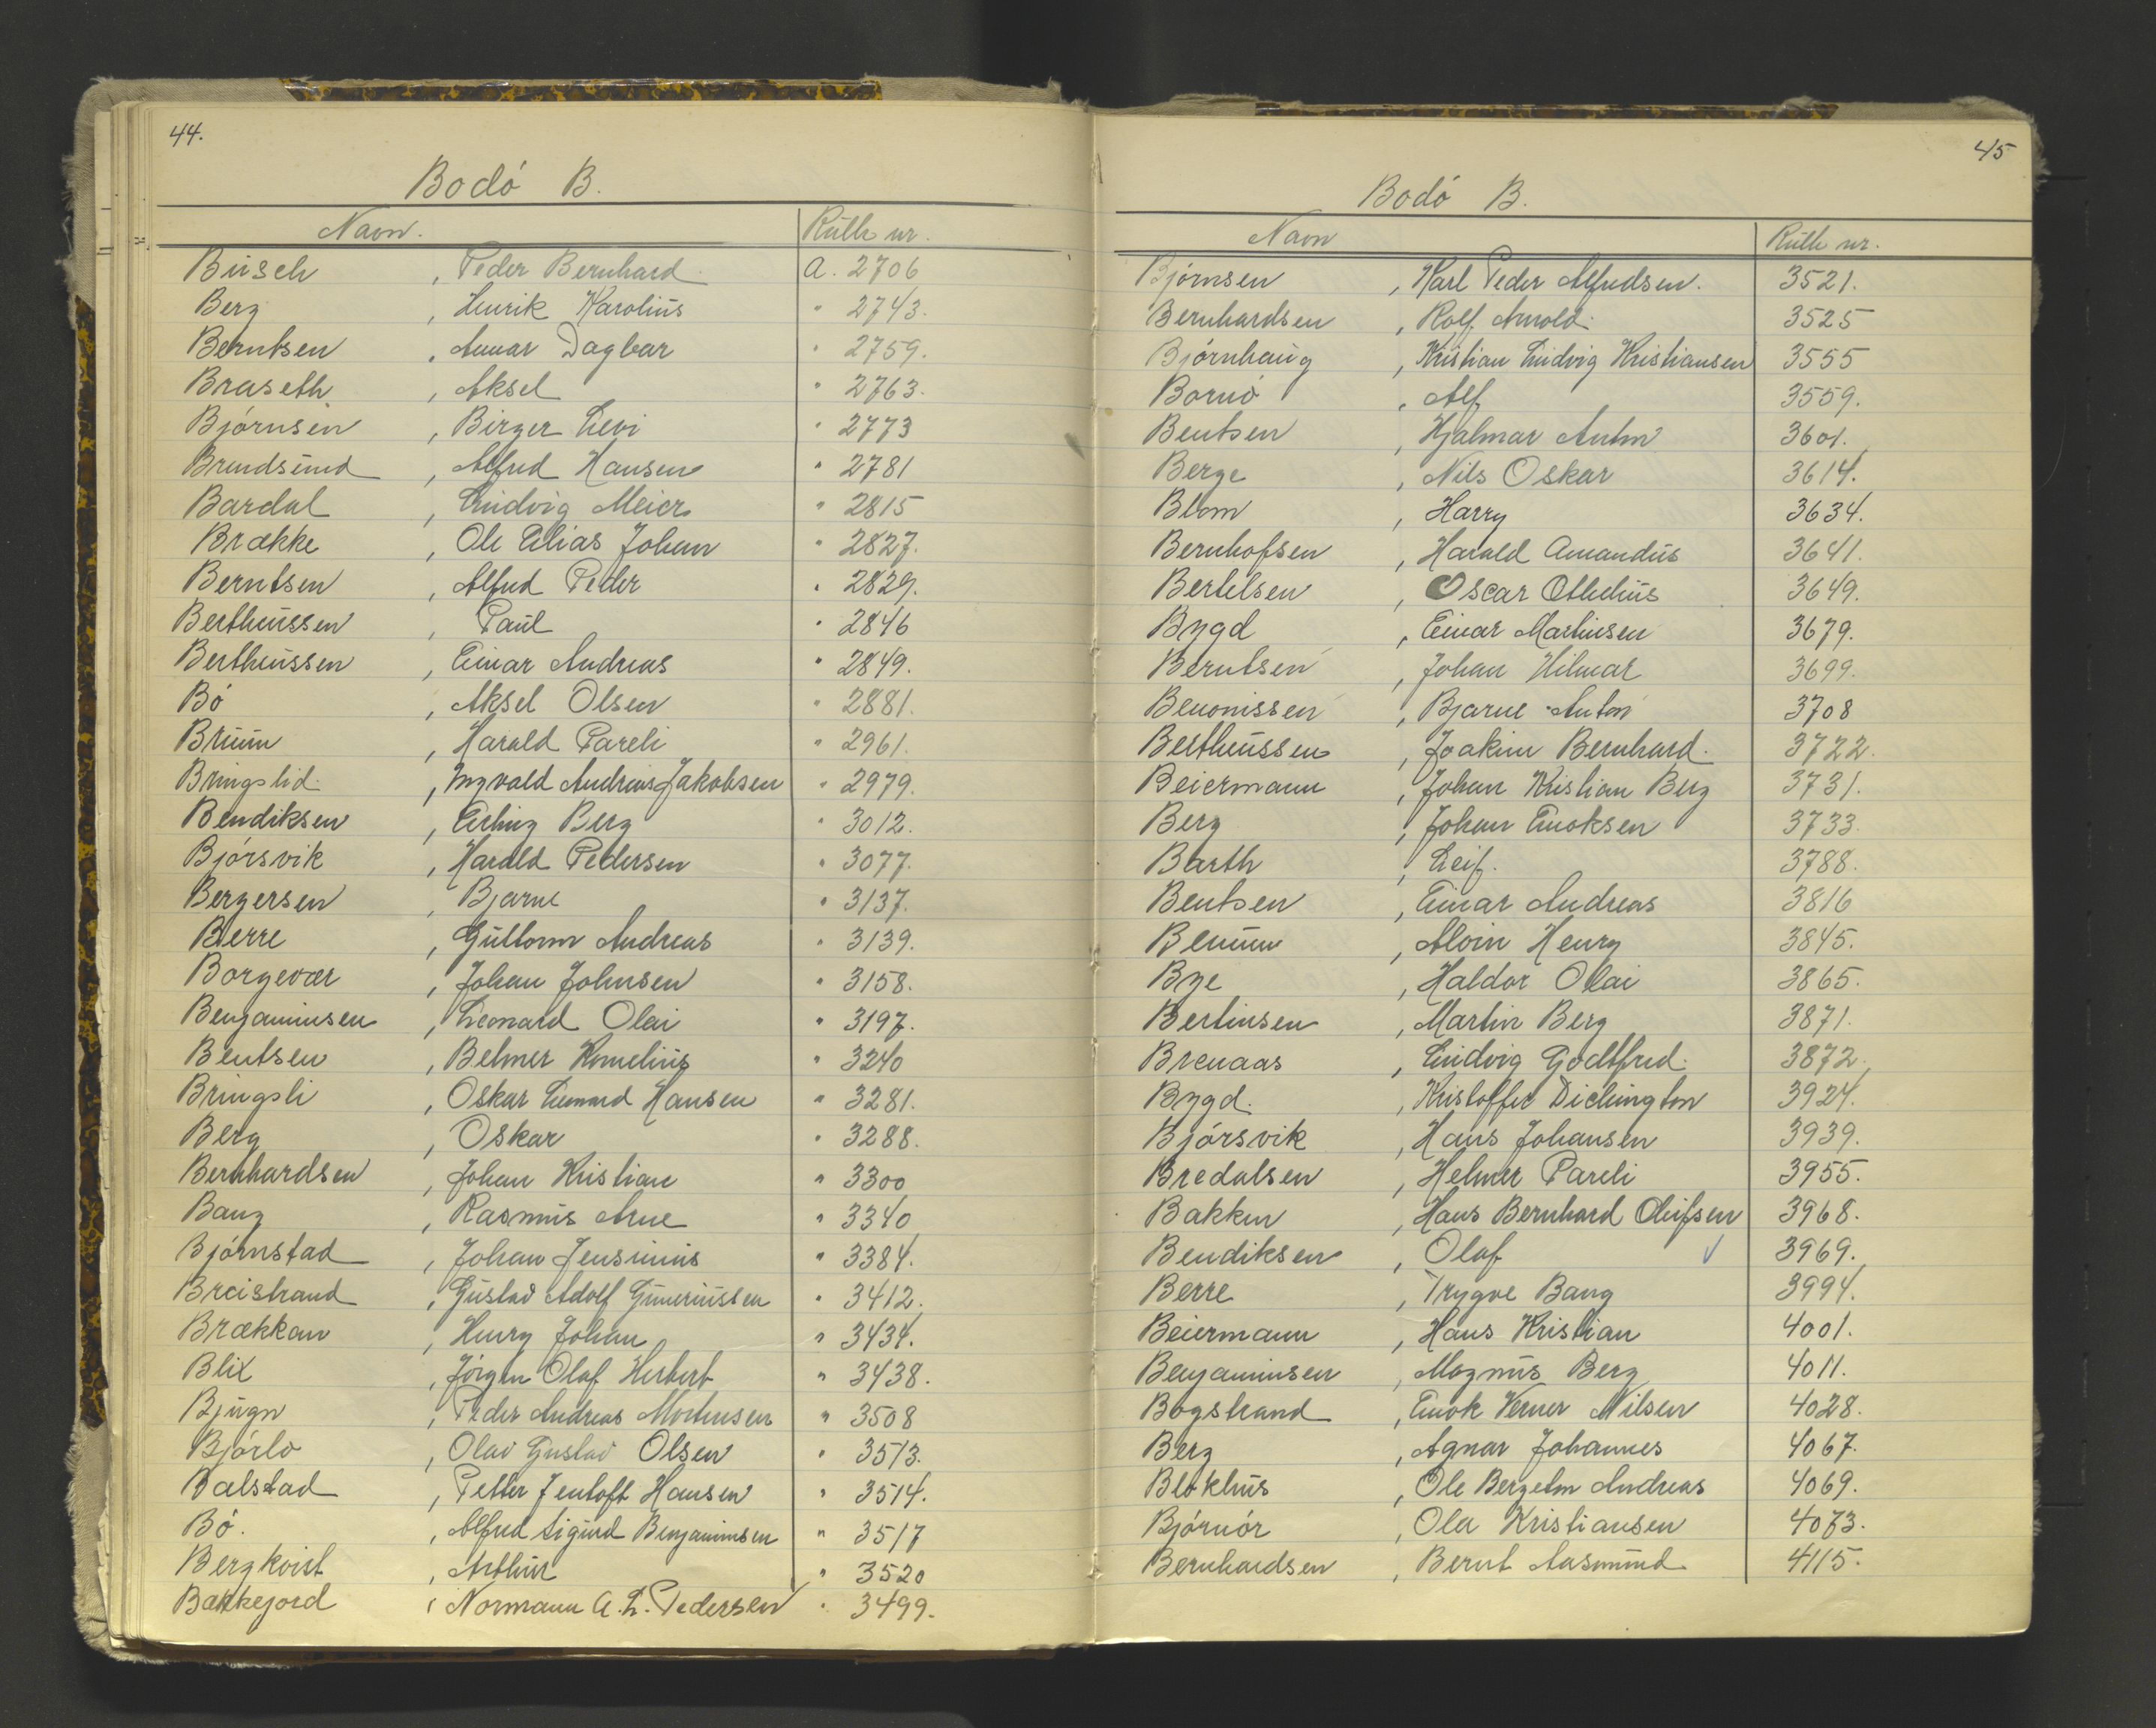 44.
Bodó B.
Navn. Rulle nr.
Büsch, Peder Bernhard. a. 2706
Berg, Henrik Karoliüs " 2743.
Berntsen, Annar Dagbar " 2759.
Braseth, Aksel " 2763.
Bjórnsen, Birger Levi " 2773
Brudsünd, Alfred Hansen " 2781
Bardal, Lüdvig Meier " 2815
Brække, Ole Elias Johan " 2827.
Berntsen, Alfred Peder " 2829.
Bertheüssen, Paül " 2846
Bertheüssen, Einar Andreas " 2849.
Bó, Aksel Olsen " 2881.
Brüün, Harald Pareli " 2961.
Bringslid, Ingvald Andreas Jakobsen " 2979.
Bendiksen, Erling Berg " 3012.
Bjórsvik, Harald Pedersen " 3077.
Bergersen, Bjarne " 3137.
Berre, Güttorm Andreas " 3139.
Borgevær, Johan Johnsen " 3158.
Benjaminsen, Leonard Olai " 3197.
Bentsen, Belmer Korneliüs " 3240
Bringsli, Oskar Leonard Hansen " 3281.
Berg, Oskar " 3288.
Bernhardsen, Johan Kristian " 3300
Bang, Rasmüs Arne " 3340
Bjórnstad, Johan Jensinius " 3384.
Breistrand, Güstav Adolf Güneriüssen " 3412.
Brækkan, Henry Johan " 3434.
Blix, Jórgen Olaf Herbert " 3438.
Bjügn, Peder Andreas Mortensen " 3508
Bjórlo, Olav Gustav Olsen " 3513.
Balstad, Petter Jentoft Hansen " 3514.
Bó., Alfred Sigürd Benjaminsen " 3517
Bergkvist, Arthür " 3520
Bakkejord, Normann A. L. Pedersen " 3499.
45
Bodó B.
Navn Rulle nr.
Bjórnsen, Karl Peder Alfredsen. 3521.
Bernhardsen, Rolf Arnold. 3525
Bjórnhaüg, Kristian Lüdvig Kristiansen 3555
Bornó, Alf 3559.
Bentsen, Hjalmar Anton 3601.
Berge, Nils Oskar 3614.
Blom, Harry 3634.
Bernhofsen, Harald Amandüs 3641.
Bertelsen, Oscar Otheliüs 3649.
Bygd, Einar Martinsen 3679.
Berntsen, Johan Hilmar 3699.
Benonissen, Bjarne Anton 3708
Bertheüssen, Joakim Bernhard. 3722.
Beiermann, Johan Kristian Berg 3731.
Berg, Johan Enoksen 3733.
Barth, Leif. 3788.
Bentsen, Einar Andreas 3816
Benüm, Alvin Henry 3845.
Bye, Haldor Olai 3865.
Bertinsen, Martin Berg 3871.
Brenaas, Lüdvig Godtfred. 3872.
Bygd., Kristoffer Dichington 3924.
Bjórsvik, Hans Johansen 3939.
Bredalsen, Helmer Pareli 3955.
Bakken, Hans Bernhard Oleifsen 3968.
Bendiksen, Olaf √ 3969.
Berre, Trygve Bang 3994.
Beiermann, Hans Kristian 4001.
Benjaminsen, Magnüs Berg 4011.
Bogstrand, Enok Verner Nilsen 4028.
Berg, Agnar Johannes 4067.
Blokhüs, Ole Bergeton Andreas 4069.
Bjórnór, Ola Kristiansen 4073.
Bernhardsen, Bernt Aasmünd 4115.